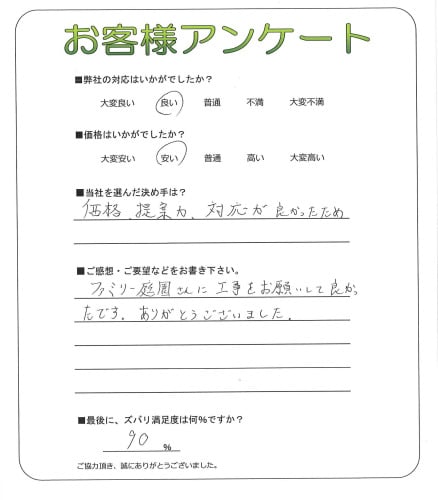 お客様アンケート
■弊社の対応はいかがでしたか?
大変良い 良い 普通 不満 大変不満
■価格はいかがでしたか?
大変安い 安い 普通 高い 大変高い
■当社を選んだ決め手は?
価格、提案力、対応が良かったため
■ご感想・ご要望などをお書き下さい。
ファミリー庭園さんに工事をお願いして良かっ
たです。ありがとうございました。
■最後に、ズバリ満足度は何%ですか?
90 %
ご協力頂き、誠にありがとうございました。